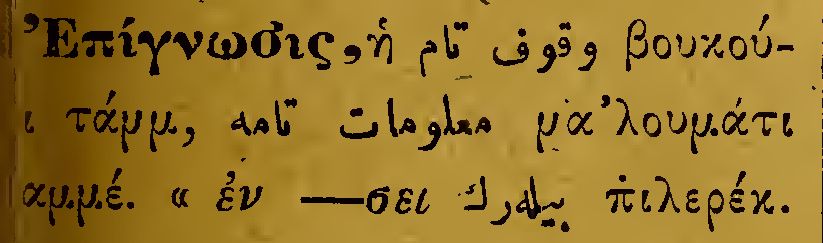 Ἐπίγνωσις, ἡ وقوف تام βουκού-
ι τάμμ, معلومات تامه μα’λουμάτι
αμμέ. « ἐν —σει بيله‌رك π̇ιλερέκ.